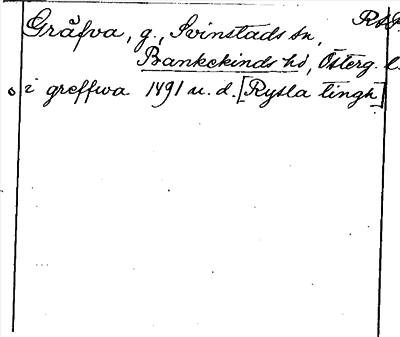 Gråfva, g., Svinstads sn,
Bankekinds hd, Österg. l.
i greffwa 1491 u. d. [Rysla tingh]